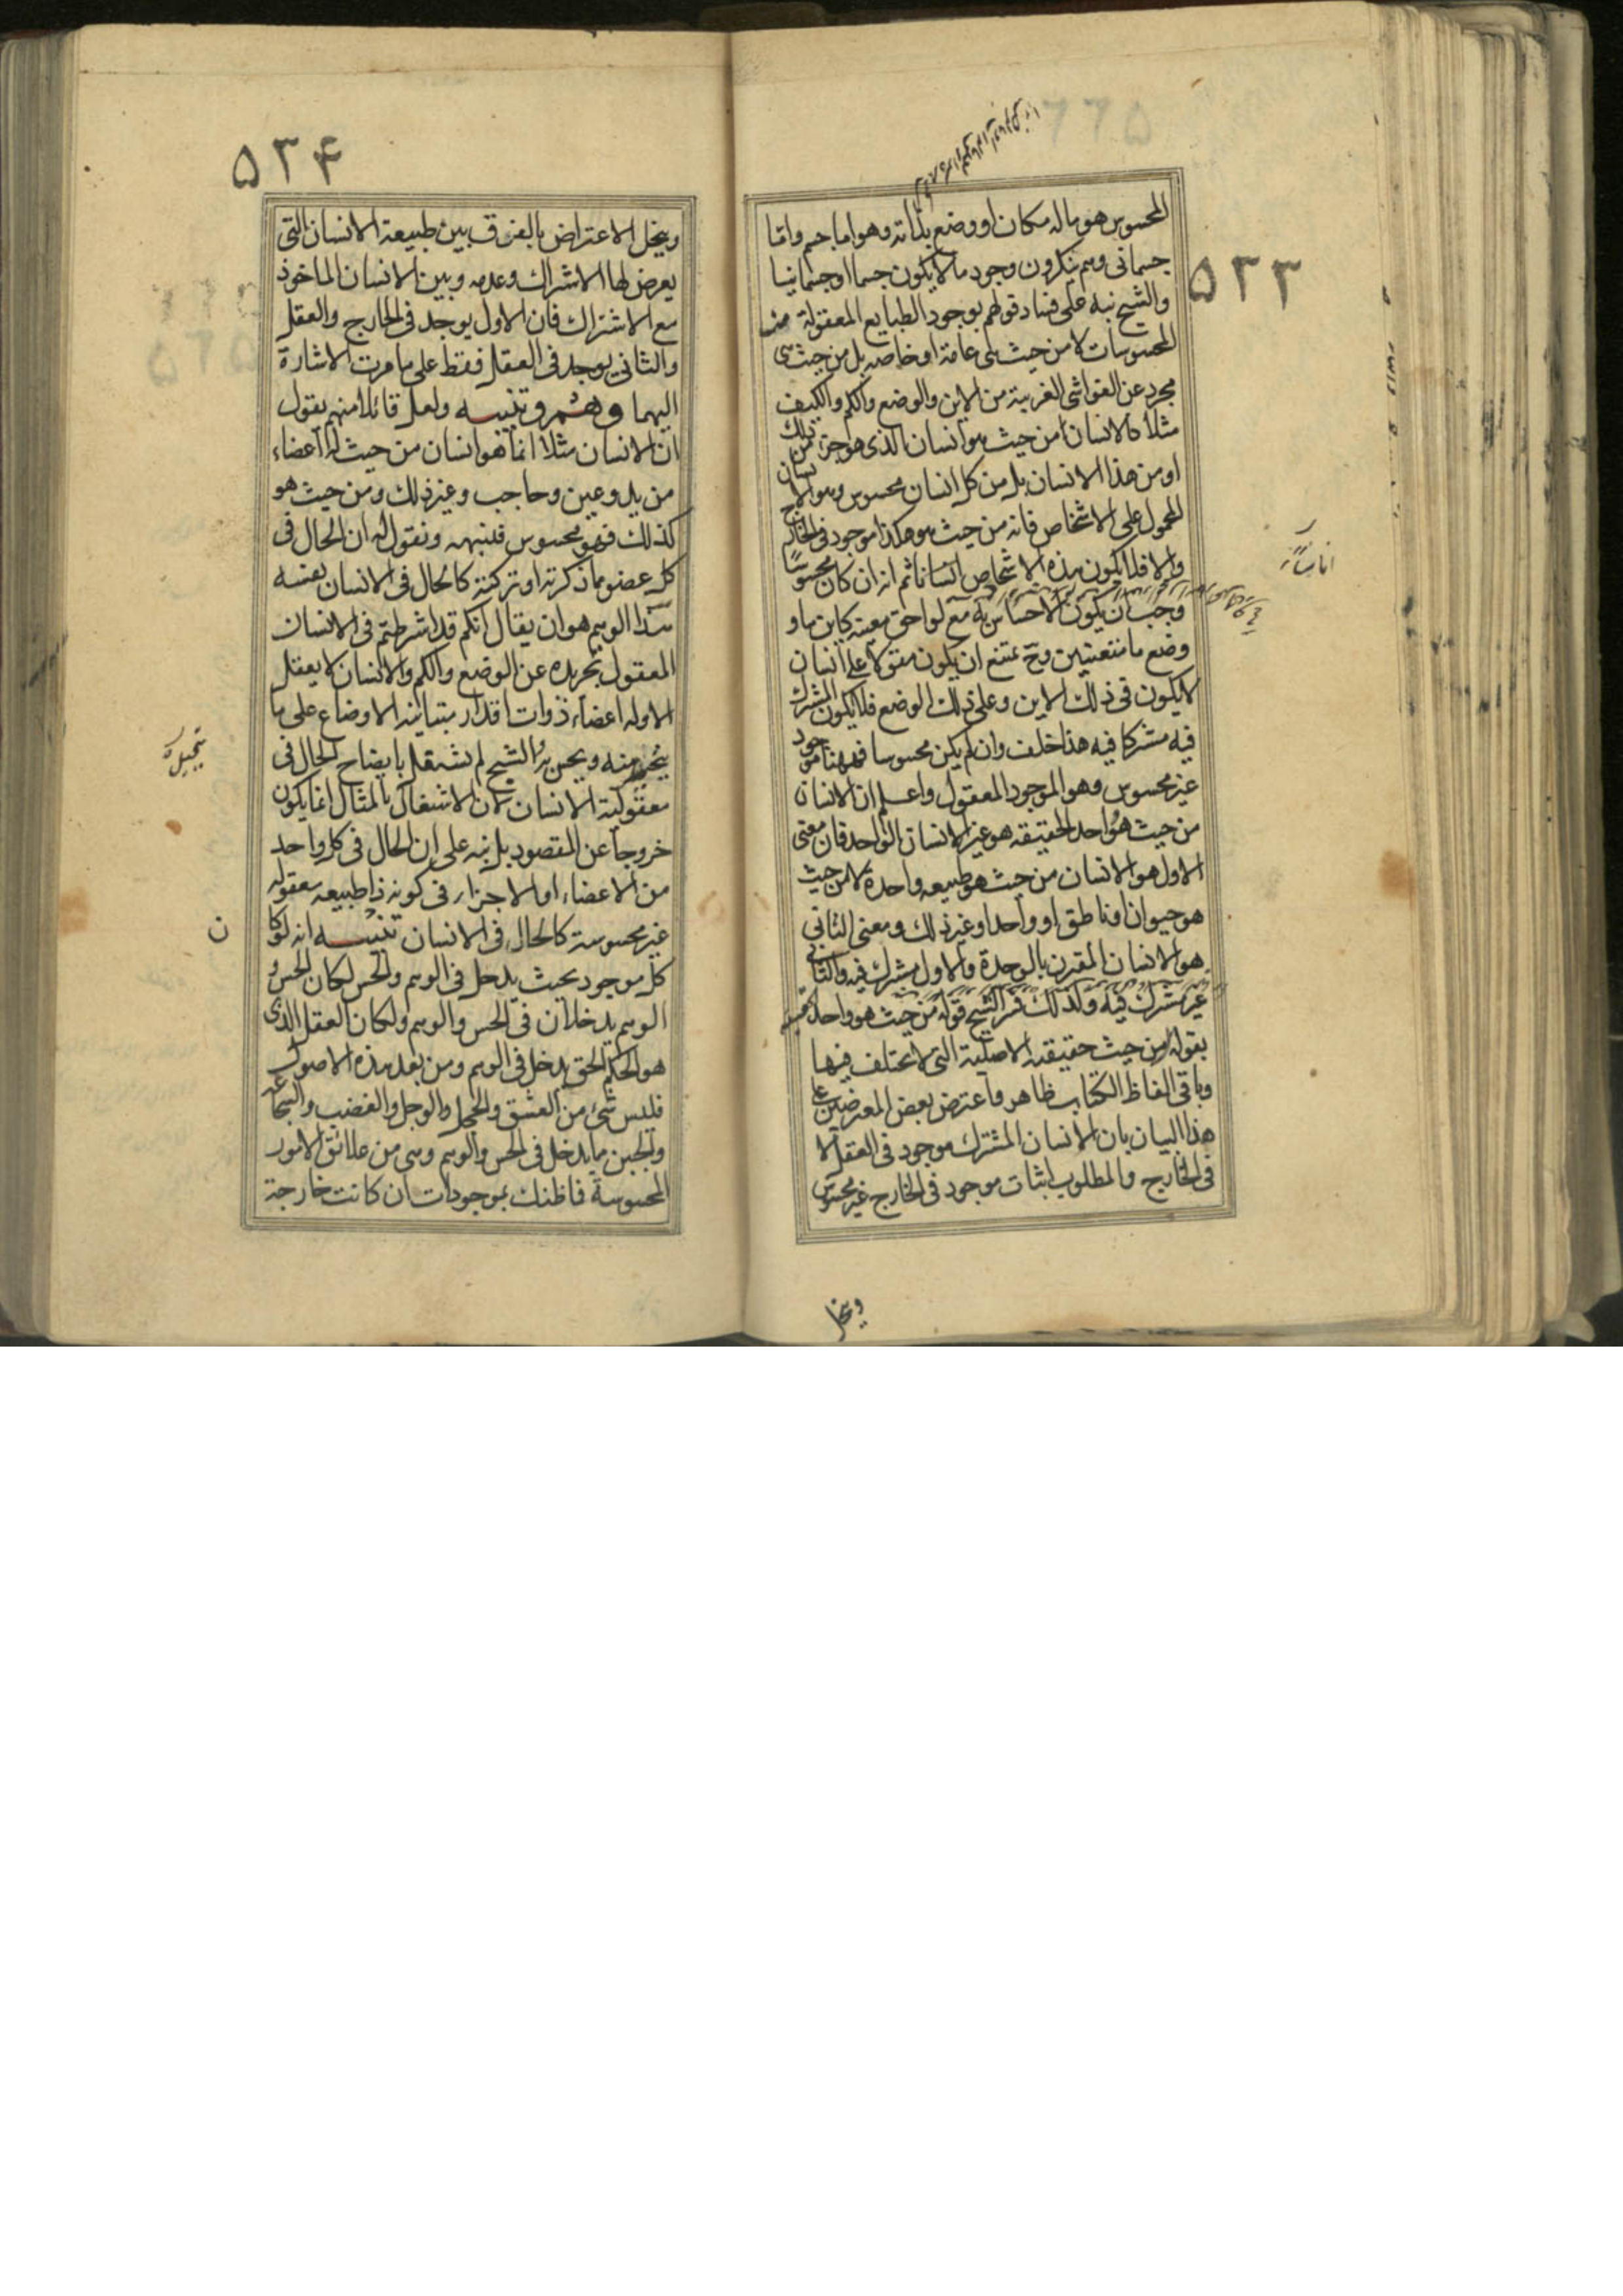 ۵۳۳
المحسوس هو ما له مكان او وضع بذاته وهو اما جسم واما
جسمانى وهم ينكرون وجود ما لا يكون جسما او جسمانيا
والشيخ نبه على فساد قولهم بوجود الطبايع المعقولة من
المحسوسات لا من حيث هى عامة او خاصه بل من حيث هى
مجرد عن الغواشى الغريبة من الاين والوضع والكم والكيف
مثلا كالانسان من حيث هو انسان الذى هو جزء من ذلك
او من هذا الانسان بل من كل انسان محسوس وهو الانسان
المحمول على الاشخاص فانه من حيث هو هكذا موجود فى الخارج
والا فلا يكون هذه الاشخاص انسانا ثم انه ان كان محسوسا
وجب ان يكون الاحساس به مع لواحق معينة كاين ما و
وضع ما متعينين وح يمتنع ان يكون مقولا على انسان
لا يكون فى ذلك الاين وعلى ذلك الوضع فلا يكون المشترك
فيه مشتركا فيه هذا خلف وان لم يكن محسوسا فههنا موجود
غير محسوس وهو الموجود المعقول واعلم ان الانسان
من حيث هو واحد الحقيقه هو غير الانسان الواحد فان معنى
الاول هو الانسان من حيث هو طبيعه واحدة لا من حيث
هو حيوان او ناطق او واحد او غير ذلك ومعنى الثانى
هو الانسان المقترن بالوحدة والاول مشترك فيه والثانى
غير مشترك فيه ولذلك فسر الشيخ قوله من حيث هو واحد الحقيقة
بقوله من حيث حقيقته الاصلية التى لا تختلف فيها
وباقى الفاظ الكتاب ظاهر واعترض بعض المعترضين على
هذا البيان بان الانسان المشترك موجود فى العقل لا
فى الخارج والمطلوب اثبات موجود فى الخارج غير محسوس
وينحل
۵۳۴
وينحل الاعتراض بالفرق بين طبيعة الانسان التى
يعرض لها الاشتراك وعدمه وبين الانسان الماخوذ
مع الاشتراك فان الاول يوجد فى الخارج والعقل
والثانى يوجد فى العقل فقط على ما مرت الاشارة
اليهما وهم وتنبيه ولعل قائلا منهم يقول
ان الانسان مثلا انما هو انسان من حيث له اعضاء
من يد وعين وحاجب وغير ذلك ومن حيث هو
كذلك فهو محسوس فننبهه ونقول له ان الحال فى
كل عضو مما ذكرته او تركته كالحال فى الانسان نفسه
هذا الوهم هو ان يقال انكم قد اشرطتم فى الانسان
المعقول تجريده عن الوضع والكم والانسان لا يعقل
الا وله اعضاء ذوات اقدار متباينة الاوضاع على ما
يتخيل منه ويحس به والشيخ لم يشتغل بايضاح الحال فى
معقولية الانسان لان الاشتغال بالمثال انما يكون
خروجا عن المقصود بل نبه على ان الحال فى كل واحد
من الاعضاء او الاجزاء فى كونه ذا طبيعه معقوله
غير محسوسة كالحال فى الانسان تنبيه انه لو كان
كل موجود بحيث يدخل فى الوهم والحس لكان الحس و
الوهم يدخلان فى الحس والوهم ولكان العقل الذى
هو الحكم الحق يدخل فى الوهم ومن بعد هذه الاصول
فليس شئ من العشق والخجل والوجل والغضب والشجاعه
والجبن مما يدخل فى الحس والوهم وهى من علائق الامور
المحسوسة فما ظنك بموجودات ان كانت خارجة
ن